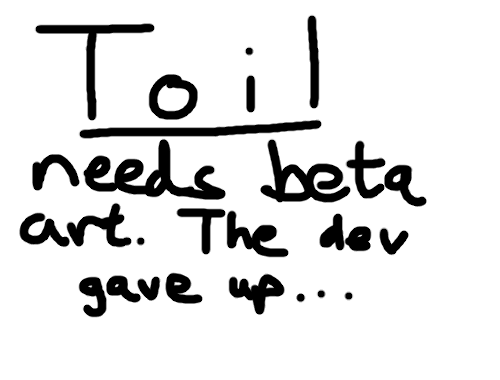 Toil
needs beta
art. The dev
gave up...